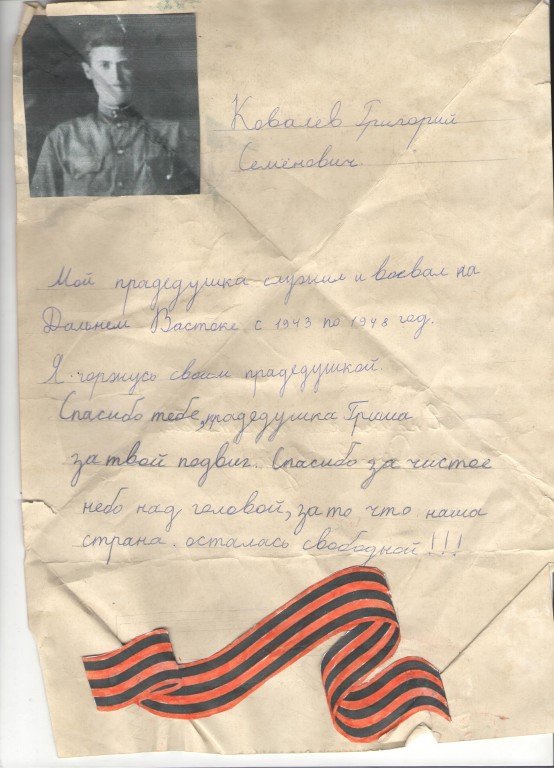 Ковалев Григорий
Семёнович.
Мой прадедушка служил и воевал на
Дальнем Востоке с 1943 по 1948 год.
Я горжусь своим прадедушкой.
Спасибо тебе, прадедушка Гриша
за твой подвиг. Спасибо за чистое
небо над головой, за то что наша
страна осталась свободной!!!